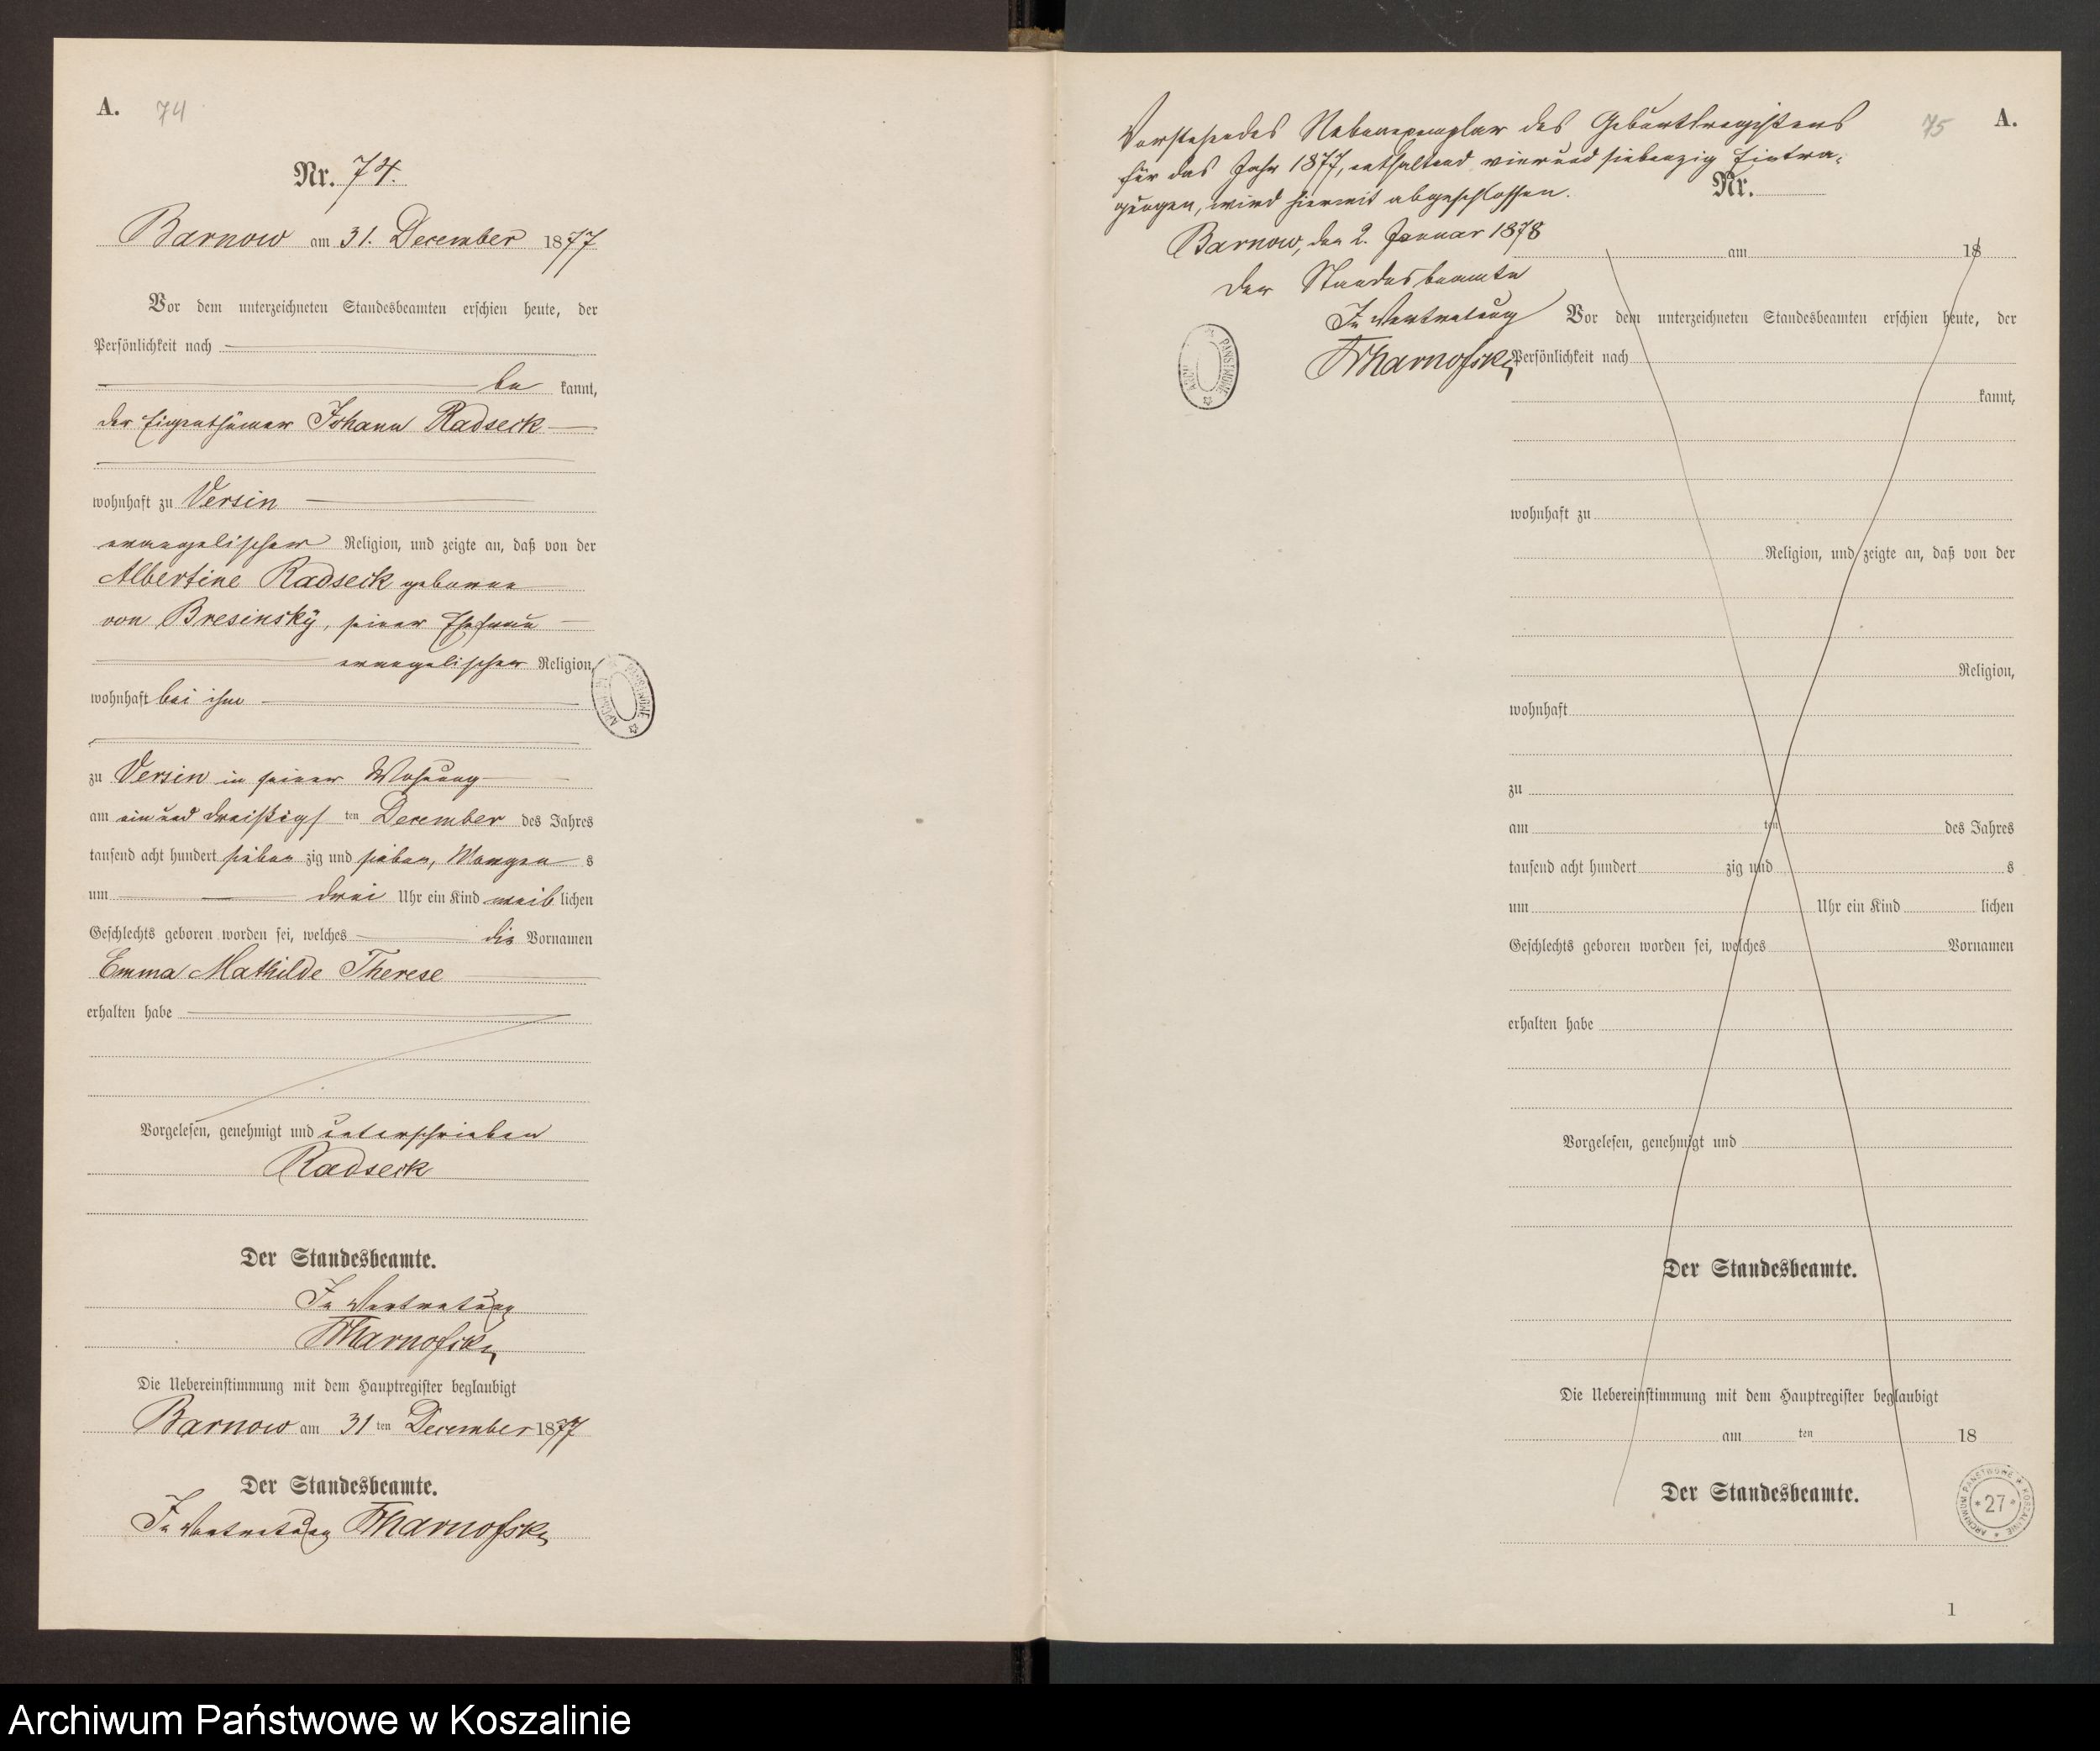 A. 74
Nr. 74.
Barnow am 31. December 1877
Vor dem unterzeichneten Standesbeamten erschien heute, der
Persönlichkeit nach
be kannt,
der Eigenthümer Johann Radseck
wohnhaft zu Versin
evangelischer Religion, und zeigte an, daß von der
Albertine Radseck geborne
von Bresinsky, seiner Ehefrau
evangelischer Religion,
wohnhaft bei ihm
zu Versin in seiner Wohnung
am ein und dreißigs ten December des Jahres
tausend acht hundert sieben zig und sieben, Morgen s
um drei Uhr ein Kind weib lichen
Geschlechts geboren worden sei, welches die Vornamen
Emma Mathilde Therese
erhalten habe
Vorgelesen, genehmigt und unterschrieben
Radseck
Der Standesbeamte.
In Vertretung
Die Uebereinstimmung mit dem Hauptregister beglaubigt
Barnow am 31 ten December 1877
Der Standesbeamte.
In Vertretung
ARCHIWUM PAŃSTWOWE
75 A.
Vorstehendes Nebenexemplar des Geburtsregisters
für das Jahr 1877, enthaltend vierundsiebenzig Eintra-
gungen, wird hiermit abgeschlossen.
Barnow, den 2. Januar 1878
Der Standesbeamte
In Vertretung
PAŃSTWOWE
Nr.
am 18
Vor dem unterzeichneten Standesbeamten erschien heute, der
Persönlichkeit nach
kannt,
wohnhaft zu
Religion, und zeigte an, daß von der
Religion,
wohnhaft
zu
am ten des Jahres
tausend acht hundert zig und s
um Uhr ein Kind lichen
Geschlechts geboren worden sei, welches Vornamen
erhalten habe
Vorgelesen, genehmigt und
Der Standesbeamte.
Die Uebereinstimmung mit dem Hauptregister beglaubigt
am ten 18
Der Standesbeamte.
ARCHIWUM PAŃSTWOWE W KOSZALINIE
* 27 *
1
Archiwum Państwowe w Koszalinie